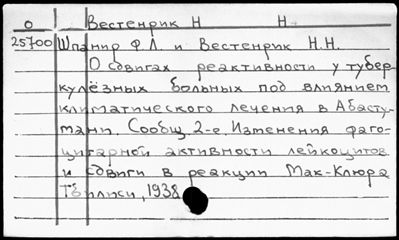 О Вестенрик Н Н.
25700 Шпанир Ф.Л. и Вестенрик Н.Н.
О сдвигах реактивности у тубер-
кулёзных больных под влиянием
климатического лечения в Абасту-
мани. Сообщ. 2-е. Изменения фаго-
цитарной активности лейкоцитов
и сдвиги в реакции Мак-Клюра
Тбилиси, 1938